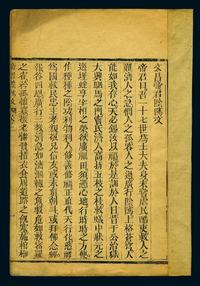 文昌帝君陰騭文
帝君曰吾一十七世為士大夫身未嘗虐民酷吏救人之
難濟人之急憫人之孤容人之過廣行陰騭上格蒼穹人
能如我存心天必錫汝以福於是訓於人曰昔于公治獄
大興駟馬之門竇氏濟人高折五枝之桂救蟻中狀元之
選埋蛇享宰相之榮欲廣福田須憑心地行時時之方便
作種種之陰功利物利人修善修福正直代天行化慈祥
為國救民忠主孝親敬兄信友或奉真朝斗或拜佛念經
報答四恩廣行三教濟急如濟涸轍之魚救危如救密羅
之雀矜孤恤寡敬老憐貧措衣食周道路之饑寒施棺槨